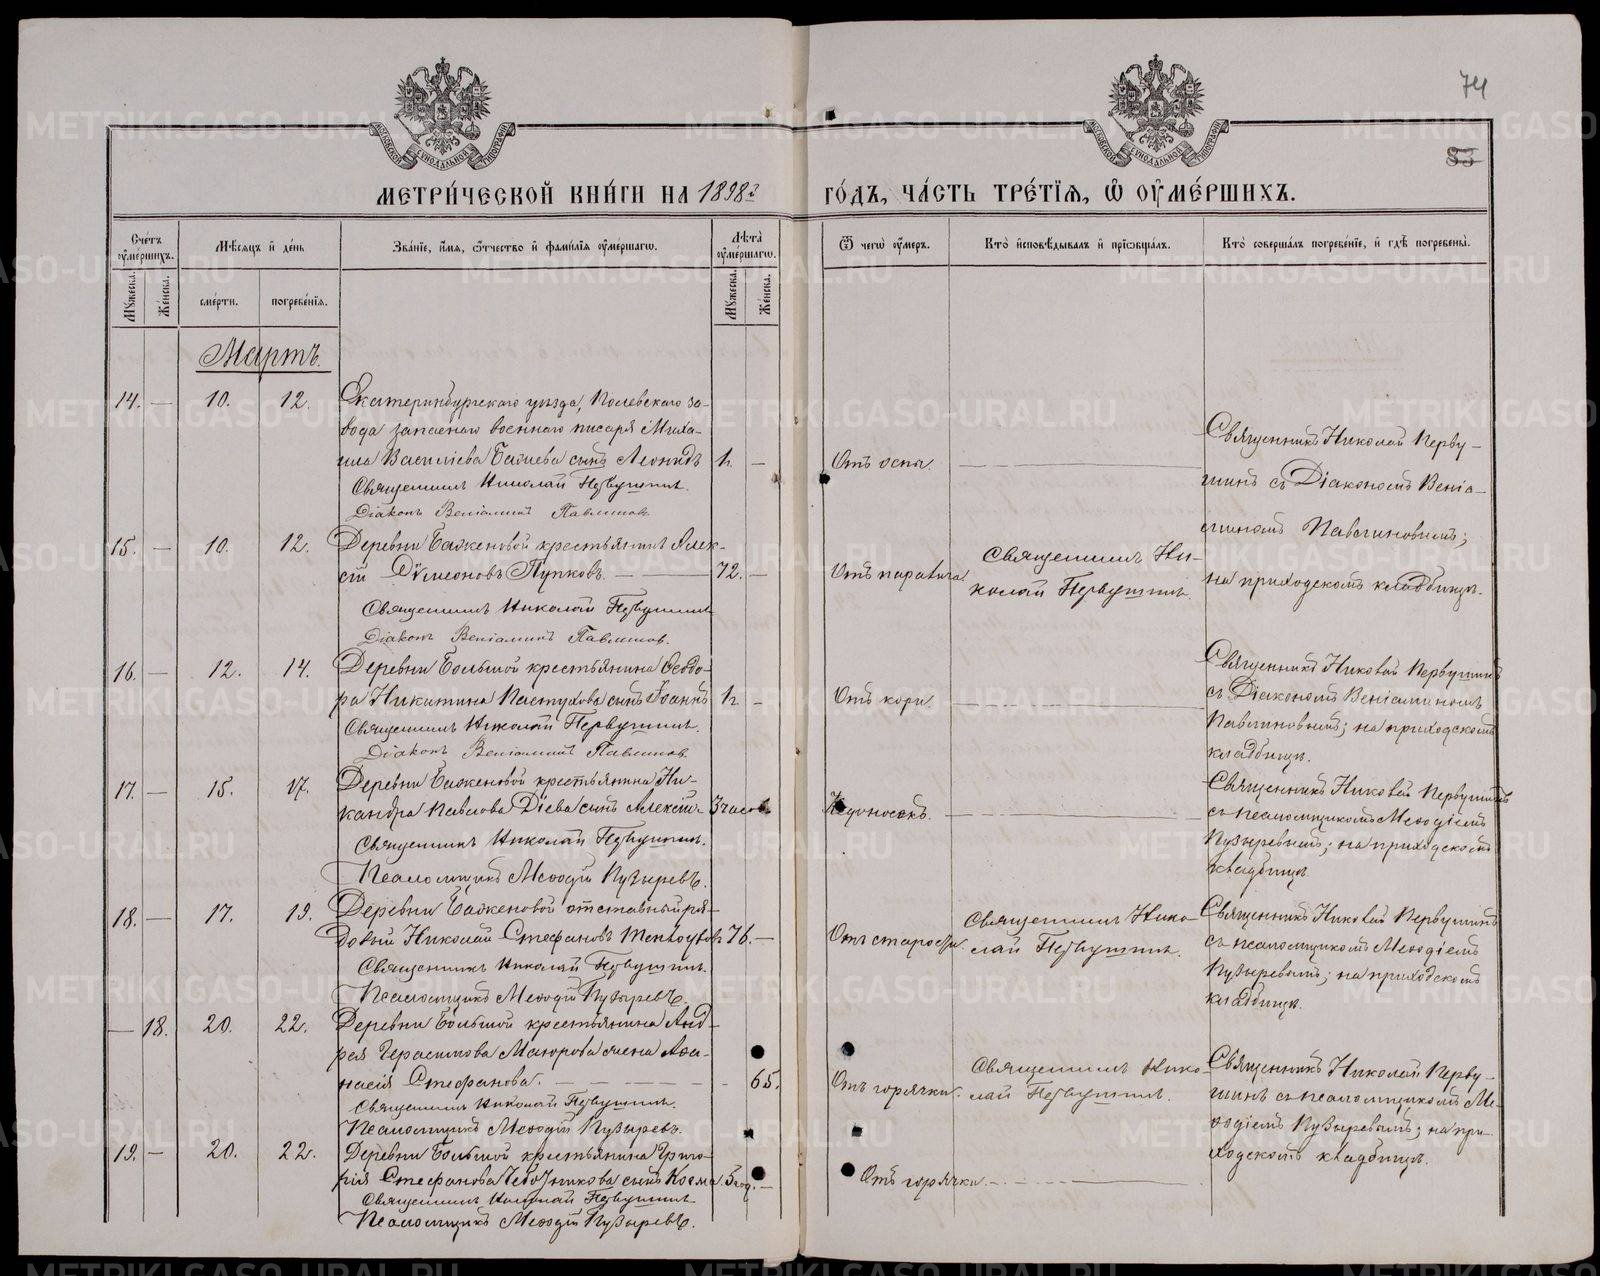 74
83
МОСКОВСКОЙ СѴНОДАЛЬНОЙ ТИПОГРАФІИ
МОСКОВСКОЙ СѴНОДАЛЬНОЙ ТИПОГРАФІИ
МЕТРИ́ЧЕСКОЙ КНИ́ГИ НА 1898 й
ГО́ДЪ, ЧА́СТЬ ТРЕ́ТІЯ, Ѿ ОУМЕ́РШИХЪ.
Сче́тъ оумершихъ.
Мѣсяцъ й де́нь
Зва́ніе, и́мя, о́тчество й фами́лія оумершаго.
Лѣта̀ оумершаго.
Ѿ чегѡ̀ оумеръ.
Кто̀ исповѣдывалъ й пріѡбща́лъ.
Кто̀ соверша́лъ погребе́ніе, й гдѣ̀ погребены̀.
Мужеска.
Женска.
сме́рти.
погребе́нія.
Мужеска.
Женска.
Мартъ.
14. — 10. 12.
Екатеринбургскаго уѣзда, Полевскаго за-
вода запаснаго военнаго писаря Миха-
ила Василіева сынъ Леонидъ
Священникъ Николай Первушинъ.
Діаконъ Веніаминъ Павлиновъ
Отъ оспы.
Священникъ Николай Перву-
шинъ съ Діакономъ Веніа-
миномъ Павлиновымъ;
на приходскомъ кладбищѣ.
15. — 10. 12.
Деревни Баженовой крестьянинъ Алек-
сій Сѵмеоновъ Пупковъ. — 72. —
Священникъ Николай Первушинъ
Діаконъ Веніаминъ Павлиновъ.
Отъ паралича.
Священникъ Ни-
колай Первушинъ.
16. — 12. 14.
Деревни Большой крестьянина Ѳеодо-
ра Никитина Пастухова сынъ Іоаннъ
Священникъ Николай Первушинъ.
Діаконъ Веніаминъ Павлиновъ.
Отъ кори.
Священникъ Николай Первушинъ
съ Діакономъ Веніаминомъ
Павлиновымъ; на приходскомъ
кладбищѣ.
17. — 15. 17.
Деревни Баженовой крестьянина Ни-
кандра Павлова Діева сынъ Алексій 3 часовъ
Священникъ Николай Первушинъ.
Псаломщикъ Меѳодій Пузыревъ.
Недоносокъ.
Священникъ Николай Первушинъ
съ псаломщикомъ Меѳодіемъ
Пузыревымъ; на приходскомъ
кладбищѣ
18. — 17. 19.
Деревни Баженовой отставный ря-
довый Николай Стефановъ 76. —
Священникъ Николай Первушинъ.
Псаломщикъ Меѳодій Пузыревъ.
Отъ старости.
Священникъ Нико-
лай Первушинъ.
Священникъ Николай Первушинъ
съ псаломщикомъ Меѳодіемъ
Пузыревымъ; на приходскомъ
кладбищѣ.
— 18. 20. 22.
Деревни Большой крестьянина Анд-
рея Герасимова Маюрова жена Аѳа-
насія Стефанова. — 65.
Священникъ Николай Первушинъ.
Псаломщикъ Меѳодій Пузыревъ.
Отъ горячки.
Священникъ Нико
лай Первушинъ.
Священникъ Николай Перву-
шинъ съ псаломщикомъ Ме-
ѳодіемъ Пузыревымъ; на при-
ходскомъ кладбищѣ.
19. — 20. 22.
Деревни Большой крестьянина Григо-
рія Стефанова сынъ Косма 5 год. —
Священникъ Николай Первушинъ
Псаломщикъ Меѳодій Пузыревъ.
Отъ горячки.
METRIKI.GASO-URAL.RU